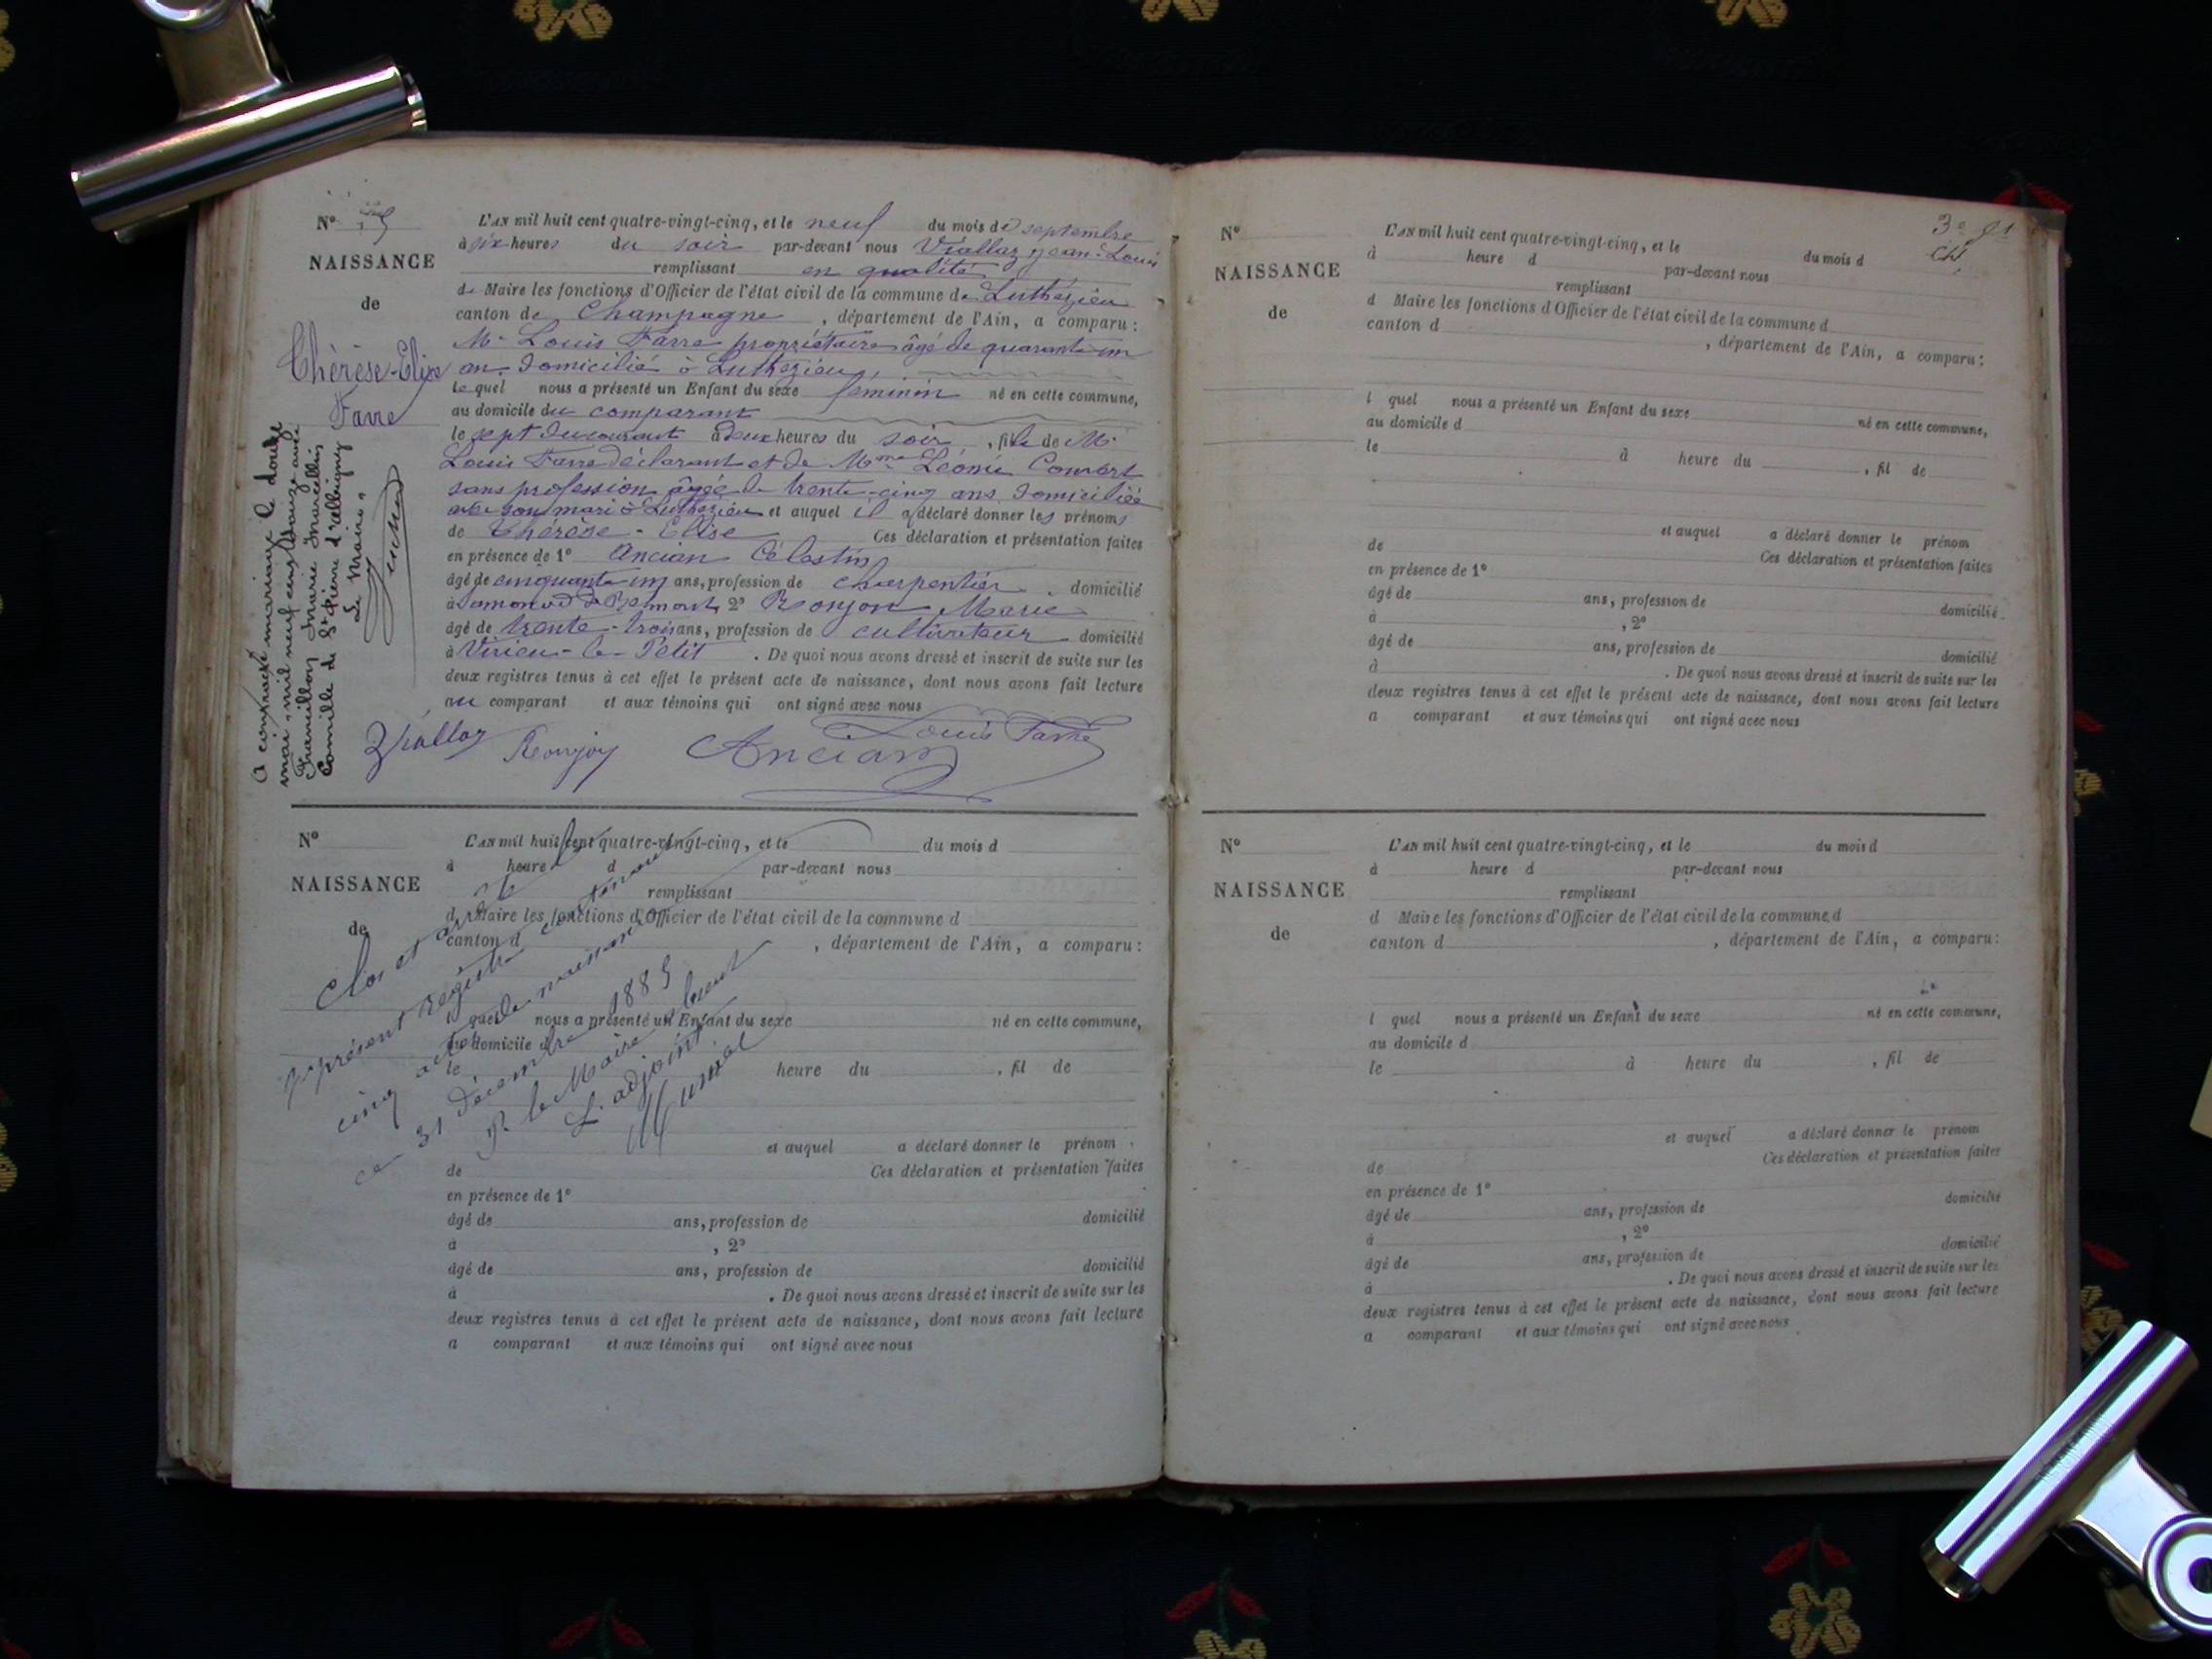 N° 5
NAISSANCE
de
Thérèse-Elise
Farre
A comparé mariage le douze
mai mil neuf cent
Marie Marcellin
Camille de St Pierre d'albigny
Le Maire,
L'AN mil huit cent quatre-vingt-cinq, et le neuf du mois de septembre
à six heures du soir par-devant nous Viallaz Jean-Louis
remplissant en qualité
de Maire les fonctions d'Officier de l'état civil de la commune de Luthézieu
canton de Champagne, département de l'Ain, a comparu:
Mr Louis Farre propriétaire âgé de quarante un
an domicilié à Luthézieu,
lequel nous a présenté un Enfant du sexe féminin né en cette commune,
au domicile du comparant
le sept du courant à deux heures du soir, fille de Mr
Louis Farre déclarant et de Mme Léonie
sans profession âgée de trente-cinq ans domiciliée
avec son mari à Luthézieu et auquel il a déclaré donner les prénoms
de Thérèse-Elise Ces déclaration et présentation faites
en présence de 1° Ancian Célestin
âgé de cinquante un ans, profession de charpentier, domicilié
à 2° Ronjon Marie
âgé de trente-trois ans, profession de cultivateur domicilié
à Virieu-le-Petit. De quoi nous avons dressé et inscrit de suite sur les
deux registres tenus à cet effet le présent acte de naissance, dont nous avons fait lecture
au comparant et aux témoins qui ont signé avec nous
Louis Farre
Viallaz Ronjon Ancian
N°
NAISSANCE
de
L'AN mil huit cent quatre-vingt-cinq, et le du mois d
à heure d par-devant nous
remplissant
d Maire les fonctions d'Officier de l'état civil de la commune d
canton d , département de l'Ain, a comparu:
l quel nous a présenté un Enfant du sexe né en cette commune,
au domicile d
le heure du , fil de
et auquel a déclaré donner le prénom
de Ces déclaration et présentation faites
en présence de 1°
âgé de ans, profession de domicilié
à , 2°
âgé de ans, profession de domicilié
à . De quoi nous avons dressé et inscrit de suite sur les
deux registres tenus à cet effet le présent acte de naissance, dont nous avons fait lecture
a comparant et aux témoins qui ont signé avec nous
Clos et arrêté le
présent registre contenant
cinq actes de naissance
ce 31 décembre 1885
Pr le Maire absent
L'adjoint
3e f1
N°
NAISSANCE
de
L'AN mil huit cent quatre-vingt-cinq, et le du mois d
à heure d par-devant nous
remplissant
d Maire les fonctions d'Officier de l'état civil de la commune d
canton d , département de l'Ain, a comparu:
l quel nous a présenté un Enfant du sexe né en cette commune,
au domicile d
le à heure du , fil de
et auquel a déclaré donner le prénom
de Ces déclaration et présentation faites
en présence de 1°
âgé de ans, profession de domicilié
à , 2°
âgé de ans, profession de domicilié
à . De quoi nous avons dressé et inscrit de suite sur les
deux registres tenus à cet effet le présent acte de naissance, dont nous avons fait lecture
a comparant et aux témoins qui ont signé avec nous
N°
NAISSANCE
de
L'AN mil huit cent quatre-vingt-cinq, et le du mois d
à heure d par-devant nous
remplissant
d Maire les fonctions d'Officier de l'état civil de la commune d
canton d , département de l'Ain, a comparu:
l quel nous a présenté un Enfant du sexe né en cette commune,
au domicile d
le à heure du , fil de
et auquel a déclaré donner le prénom
de Ces déclaration et présentation faites
en présence de 1°
âgé de ans, profession de domicilié
à , 2°
âgé de ans, profession de domicilié
à . De quoi nous avons dressé et inscrit de suite sur les
deux registres tenus à cet effet le présent acte de naissance, dont nous avons fait lecture
a comparant et aux témoins qui ont signé avec nous